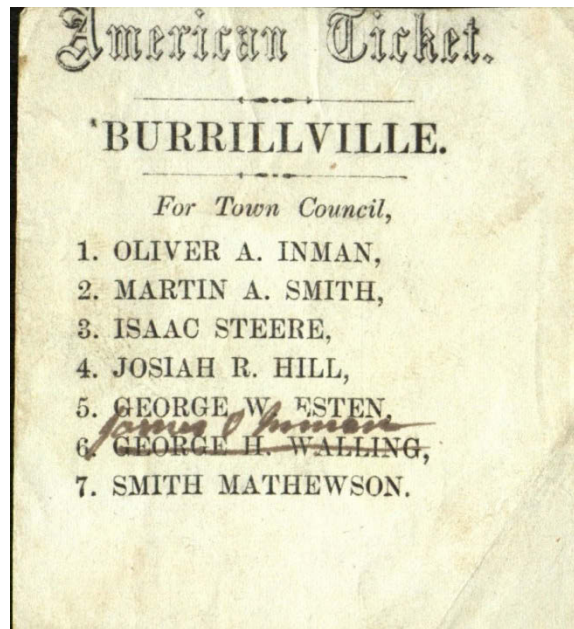 American Ticket.
BURRILLVILLE.
For Town Council,
1. OLIVER A. INMAN,
2. MARTIN A. SMITH,
3. ISAAC STEERE,
4. JOSIAH R. HILL,
5. GEORGE W. ESTEN,
James O Inman
6. GEORGE H. WALLING,
7. SMITH MATHEWSON.